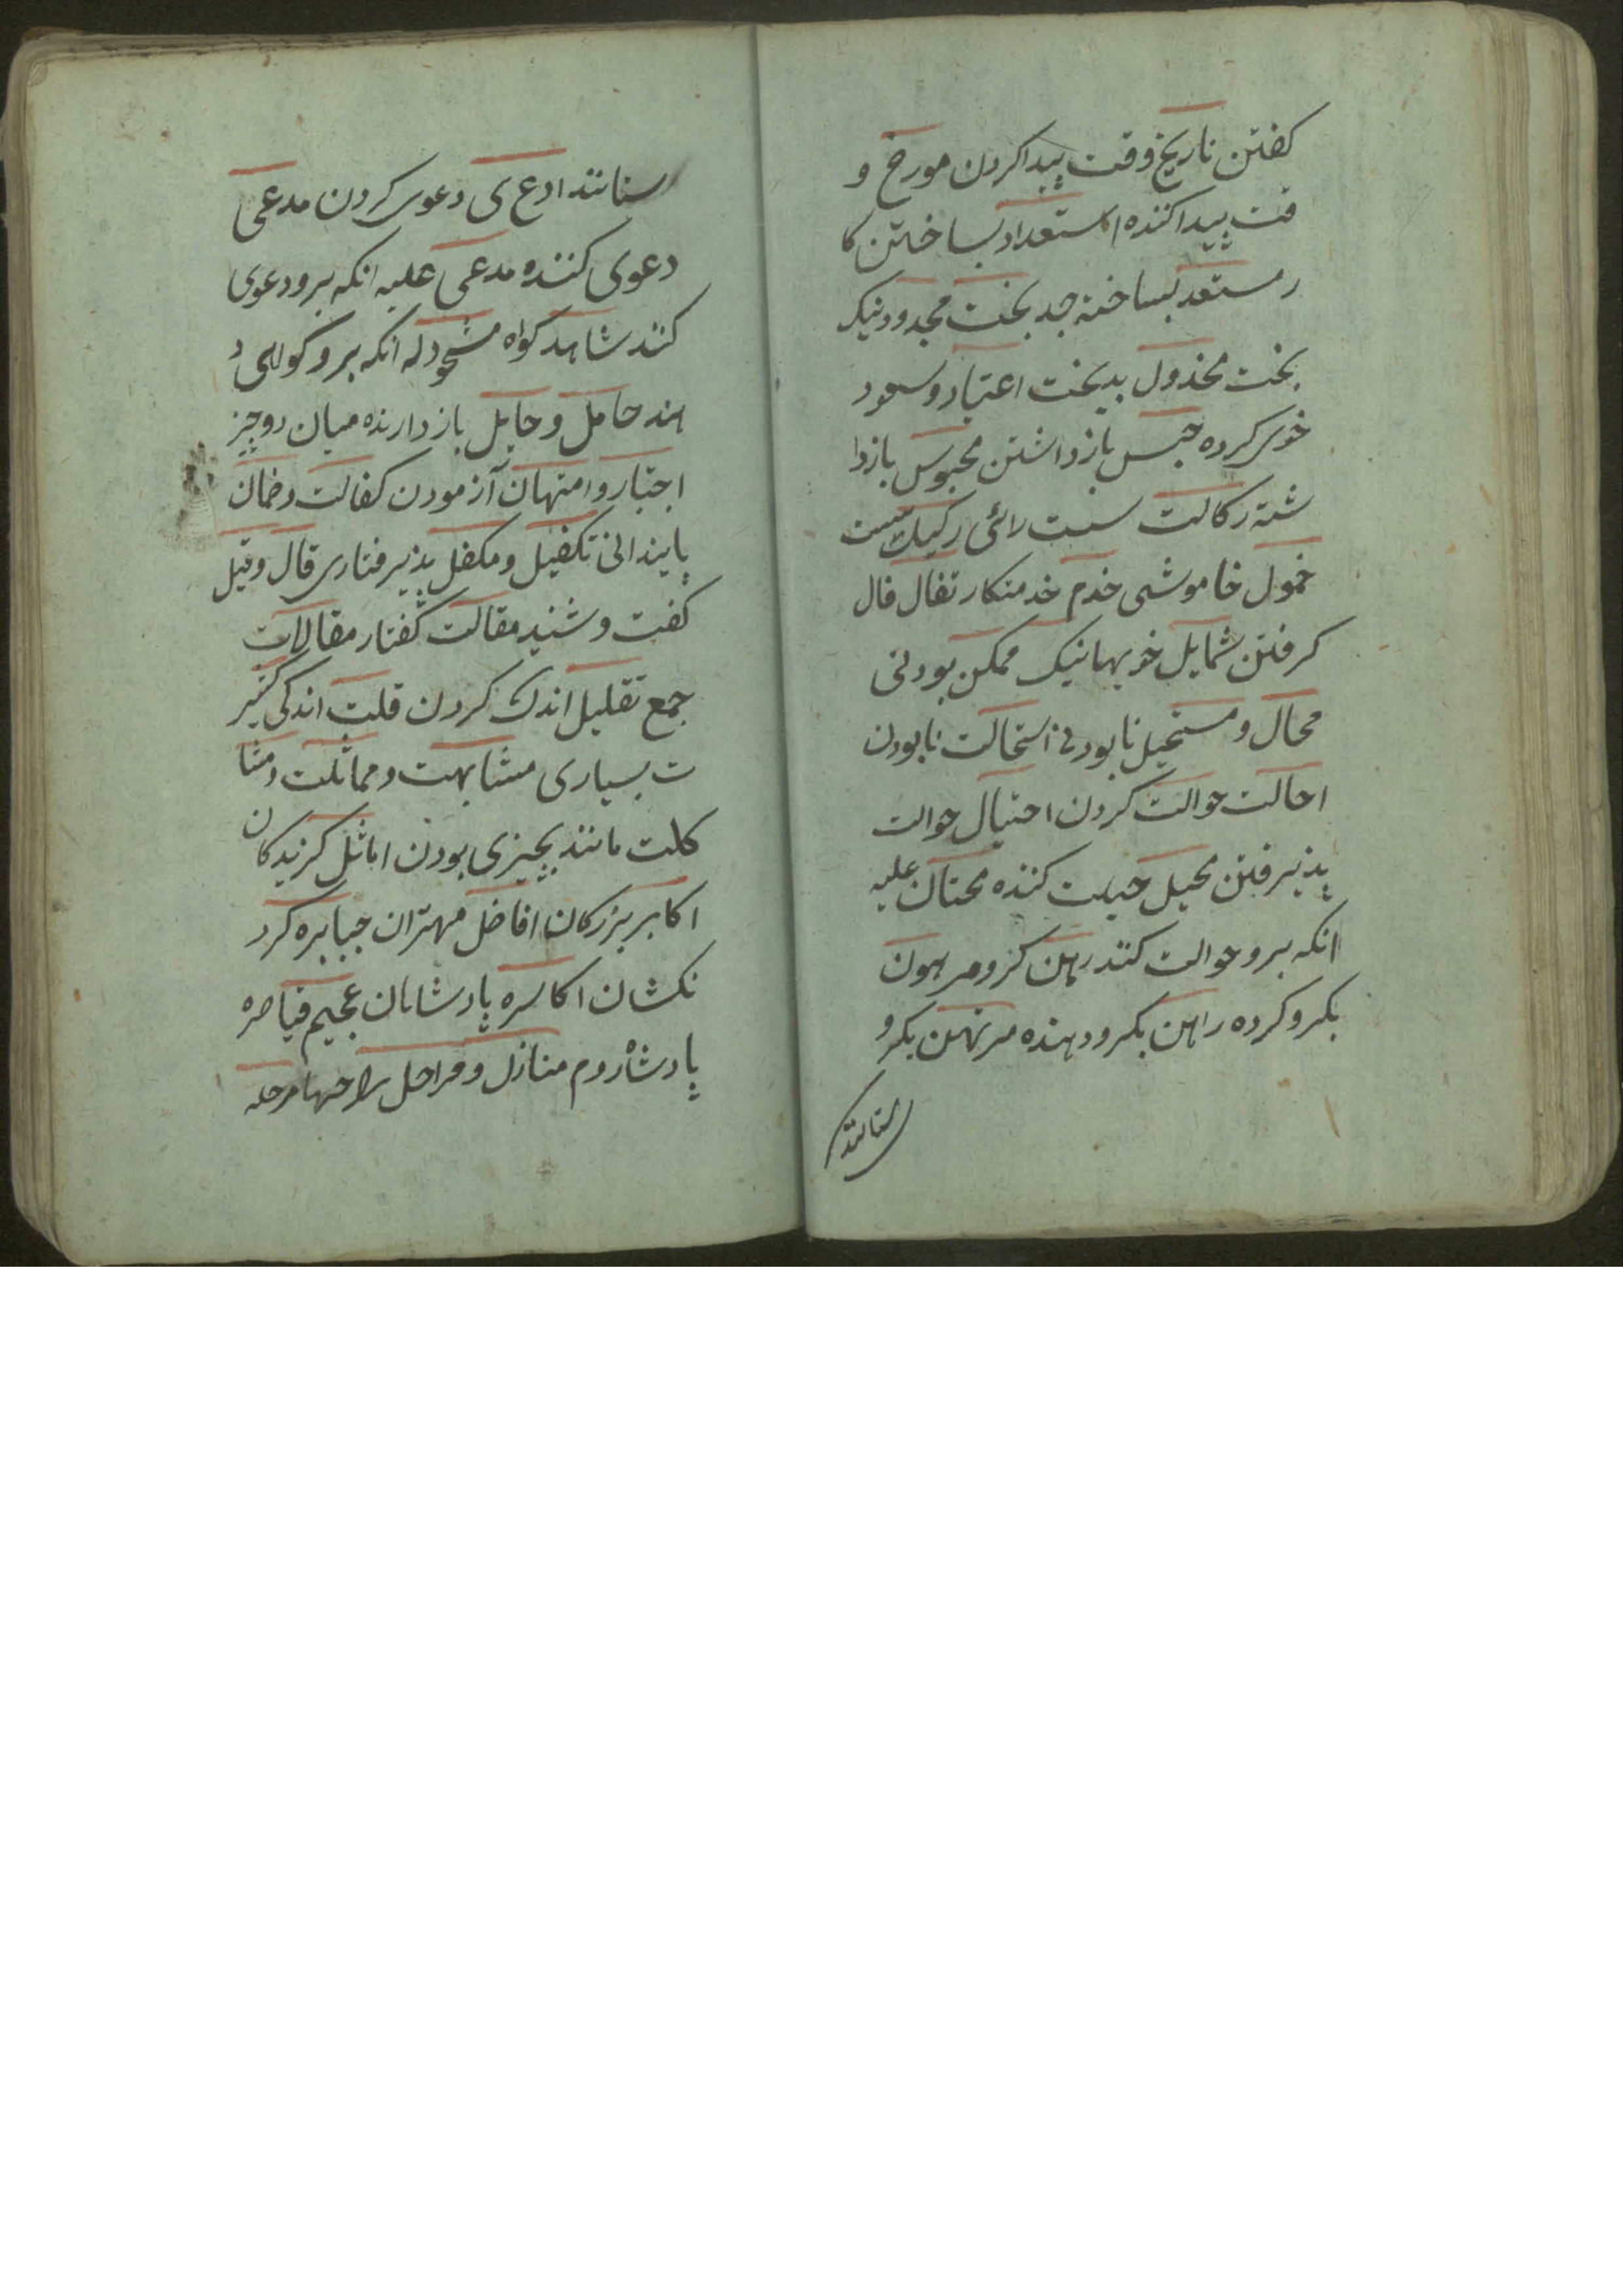 کفتن تاریخ وقت پیدا کردن مورخ و
قت پیدا کننده استعداد بساختن کا
ر مستعد بساخته جد بخت مجدود نیک
بخت مخذول بدبخت اعتیاد و سعود
خوی کرده حبس بازداشتن محبوس بازدا
شته رکالت سست رائی رکیک سست
خمول خاموشی خدم خدمتکار تفال فال
کرفتن شمایل خویها نیک ممکن بودنی
محال و مستحیل نابودنی استحالت نابودن
احالت حوالت کردن احتیال حوالت
پذیرفتن محیل حیلت کننده محتال علیه
انکه برو حوالت کنند رهن کرو مرهون
بکرو کرده راهن بکرو دهنده مرتهن بکرو
ستانند
ستانند ادعی دعوی کردن مدعی
دعوی کننده مدعی علیه انکه برو دعوی
کنند شاهد کواه مشهود له انکه برو کواهی د
هند حامل و حایل بازدارنده میان دو چیز
اختبار و امتهان آزمودن کفالت و ضمان
پایندانی تکفیل و مکفل پذیرفتاری قال و قیل
کفت و شنید مقالت کفتار مقالات
جمع تقلیل اندک کردن قلت اندکی کثیر
ت بسیاری مشابهت و مماثلت و مشا
کلت مانند بچیزی بودن اماثل کزیدکان
اکابر بزرکان افاضل مهتران جبابره کرد
نکشان اکاسره پادشاهان عجم قیاصره
پادشاه روم منازل و مراحل راحها مرحله